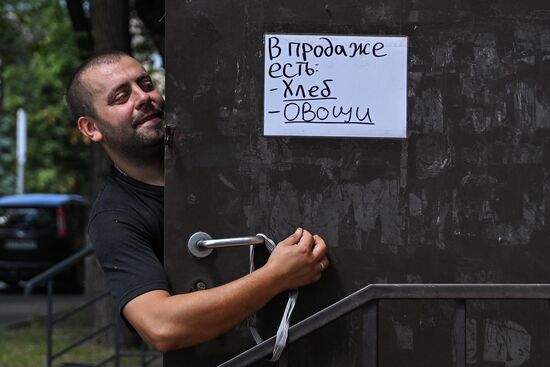 В продаже
есть:
- Хлеб
- ОВОЩИ